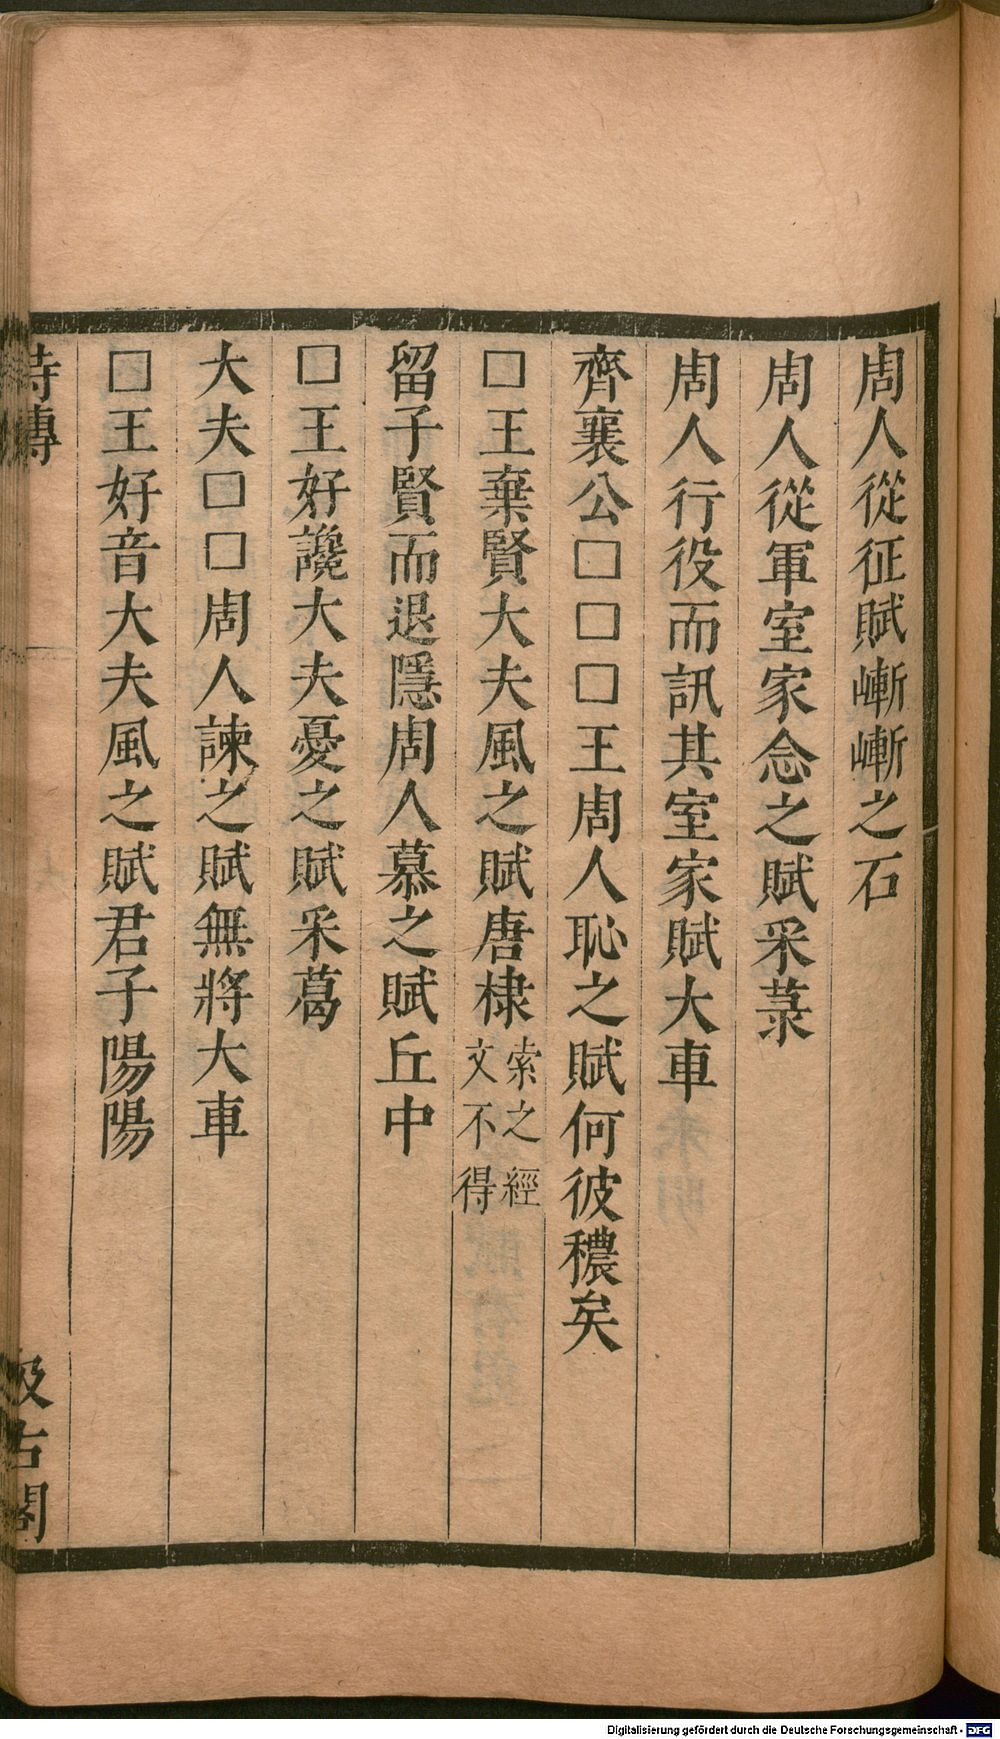 周人從征賦嶃嶃之石
周人從軍室家念之賦采菉
周人行役而訊其室家賦大車
齊襄公□□□王周人恥之賦何彼穠矣
□王棄賢大夫風之賦唐棣索之經文不得
留子賢而退隱周人慕之賦丘中
□王好讒大夫憂之賦采葛
大夫□□周人諫之賦無將大車
□王好音大夫風之賦君子陽陽
詩傳
汲古閣
Digitalisierung gefördert durch die Deutsche Forschungsgemeinschaft - DFG